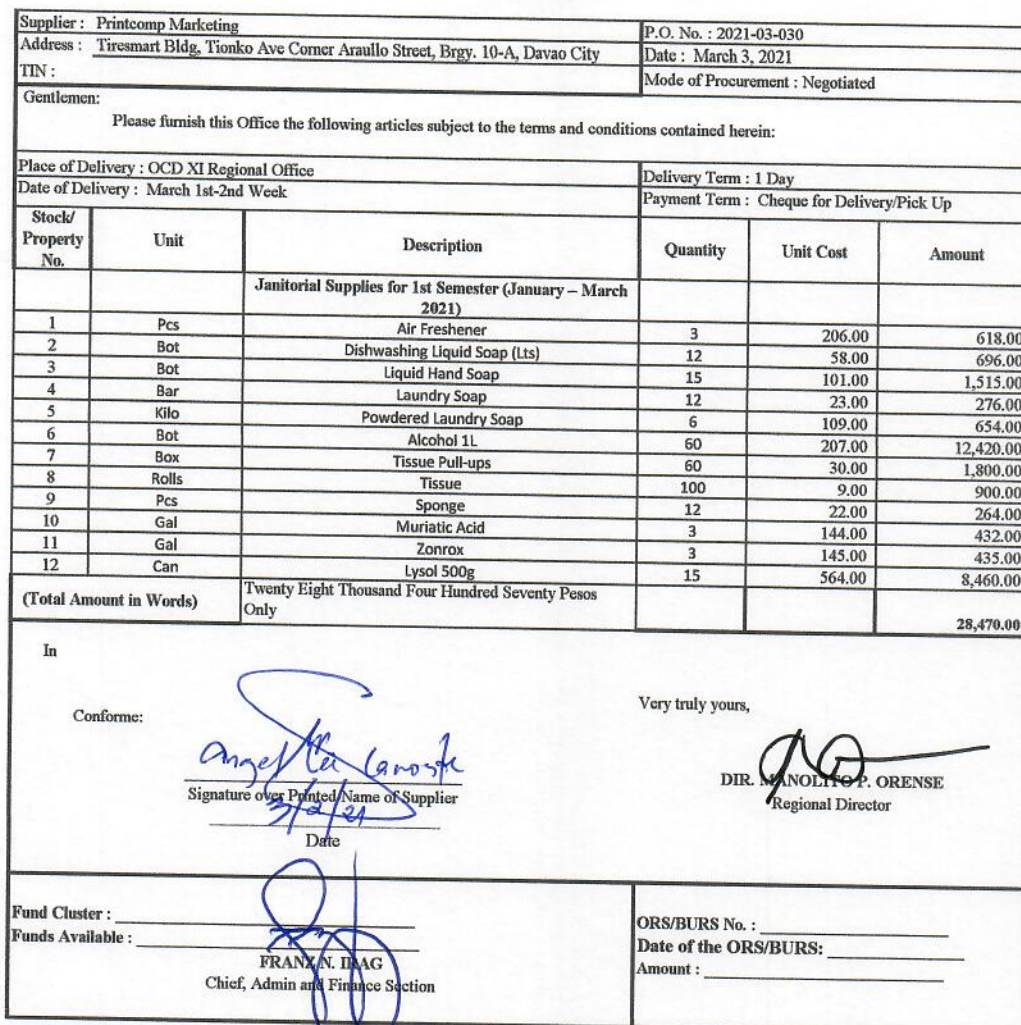 Supplier : Printcomp Marketing
Address : Tiresmart Bldg, Tionko Ave Corner Araullo Street, Brgy. 10-A, Davao City
TIN :
P.O. No. : 2021-03-030
Date : March 3, 2021
Mode of Procurement : Negotiated
Gentlemen:
Please furnish this Office the following articles subject to the terms and conditions contained herein:
Place of Delivery : OCD XI Regional Office
Date of Delivery : March 1st-2nd Week
Delivery Term : 1 Day
Payment Term : Cheque for Delivery/Pick Up
Stock/ Property No. Unit Description Quantity Unit Cost Amount
Janitorial Supplies for 1st Semester (January – March
2021)
1 Pcs Air Freshener 3 206.00 618.00
2 Bot Dishwashing Liquid Soap (Lts) 12 58.00 696.00
3 Bot Liquid Hand Soap 15 101.00 1,515.00
4 Bar Laundry Soap 12 23.00 276.00
5 Kilo Powdered Laundry Soap 6 109.00 654.00
6 Bot Alcohol 1L 60 207.00 12,420.00
7 Box Tissue Pull-ups 60 30.00 1,800.00
8 Rolls Tissue 100 9.00 900.00
9 Pcs Sponge 12 22.00 264.00
10 Gal Muriatic Acid 3 144.00 432.00
11 Gal Zonrox 3 145.00 435.00
12 Can Lysol 500g 15 564.00 8,460.00
(Total Amount in Words) Twenty Eight Thousand Four Hundred Seventy Pesos
Only
28,470.00
In
Conforme:
Very truly yours,
Signature over Printed Name of Supplier
3/2/21
Date
DIR. MANOLITO P. ORENSE
Regional Director
Fund Cluster :
Funds Available :
FRANZ N. IRAG
Chief, Admin and Finance Section
ORS/BURS No. :
Date of the ORS/BURS:
Amount :